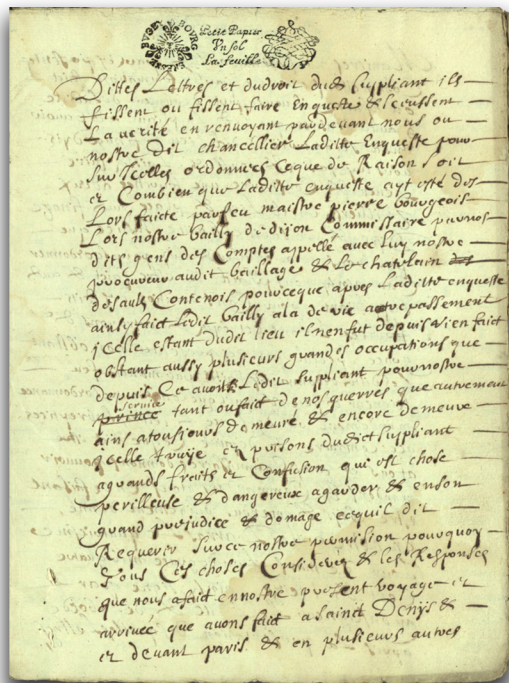 BOURG
Petit Papier
Un sol
La feuille
Dittes Lettres et dudroit dud. Suppliant ils
fissent ou fissent faire Enqueste & sceussent
La verité en renvoyant pardevant nous ou
nostre dit chancellier Laditte Enqueste pour
sur Icelles ordonner Ceque de Raison soit
et Combien que Laditte enqueste ayt esté des
Lors faicte par feu maistre pierre bourgeois
Lors nostre bailly de dijon Commissaire par nos
dits gens des Comptes appellé avec luy nostre
procureur audit bailliage & Le chatelain
desault Contenois pour ceque apres Laditte enqueste
ainsy faict Ledit bailly ala de vie a trepassement
jcelle estant dudit lieu il nen fut depuis rien faict
obstant aussy plusieurs grandes occupations que
depuis Ce avoit Ledit suppliant pour nostre
service
prince tant ou fait de nos guerres que autrement
ains atousjours demeuré & encore demeure
jcelle et prisons dudict suppliant
agrands fraits et Confusion qui est chose
perilleuse & dangereux agarder & en son
grand prejudice & domage ecequil dit
Requerir sur ce nostre provision pourquoy
Nous Ces choses Considerez & les Responses
que nous afait en nostre present voyage et
arrivée que avons fait a Sainct Denys &
et devant paris & en plusieurs autres